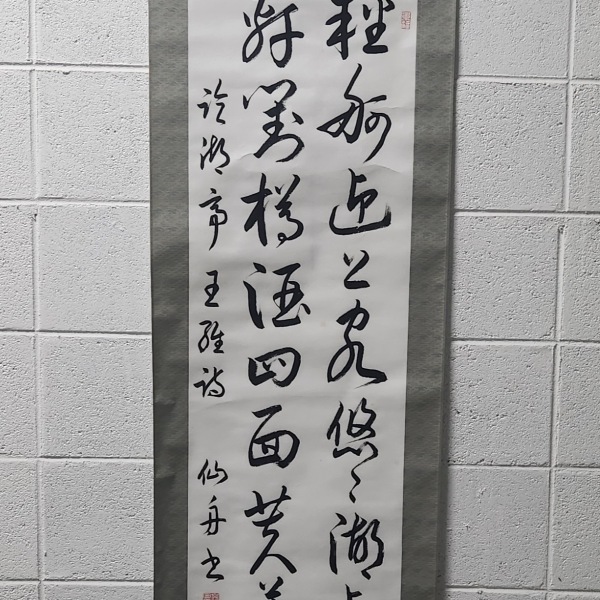 輕舸迎上客悠々湖上
軒對樽酒四面芙
臨湖亭 王維詩 仙舟書